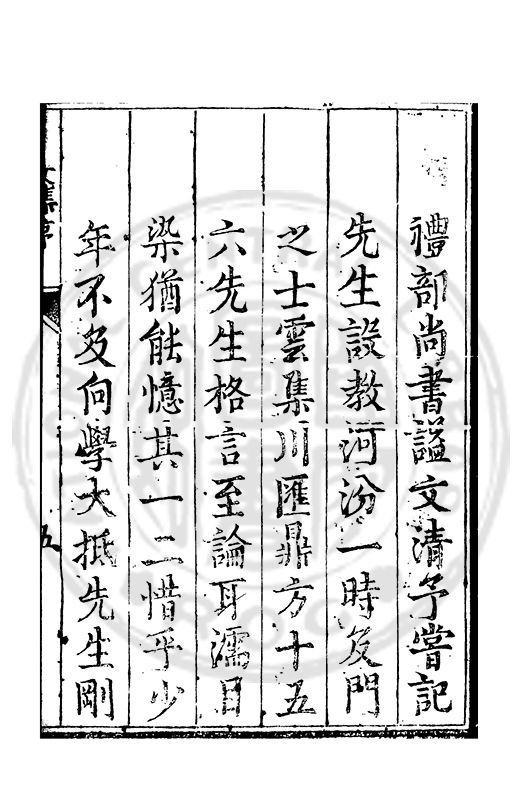 禮部尚書謚文清予嘗記
先生設教河汾一時及門
之士雲集川匯鼎方十五
六先生格言至論耳濡目
染猶能憶其一二惜乎少
年不及向學大抵先生剛
文集序
五